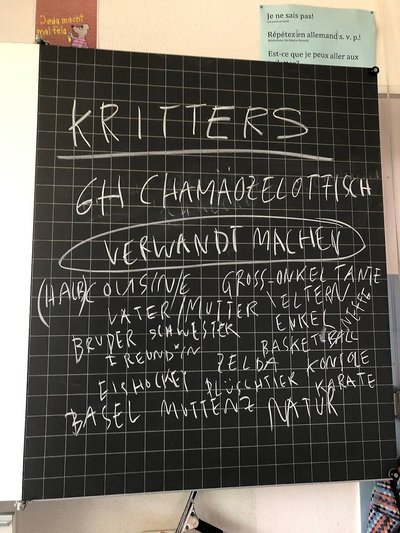 Joda macht
mal fela
Je ne sais pas!
Répétez en allemand s. v. p.!
Est-ce que je peux aller aux
KRITTERS
GH CHAMÄOZELOTFISCH
VERWANDT MACHEN
(HALB) COUSINE GROSS-ONKEL TANTE
VATER/MUTTER ELTERN
BRUDER SCHWESTER ENKEL NEFFE
FREUNDIN BASKETBALL
ZELDA KONSOLE
EISHOCKEY PLÜSCHTIER KARATE
BASEL MUTTENZ NATUR